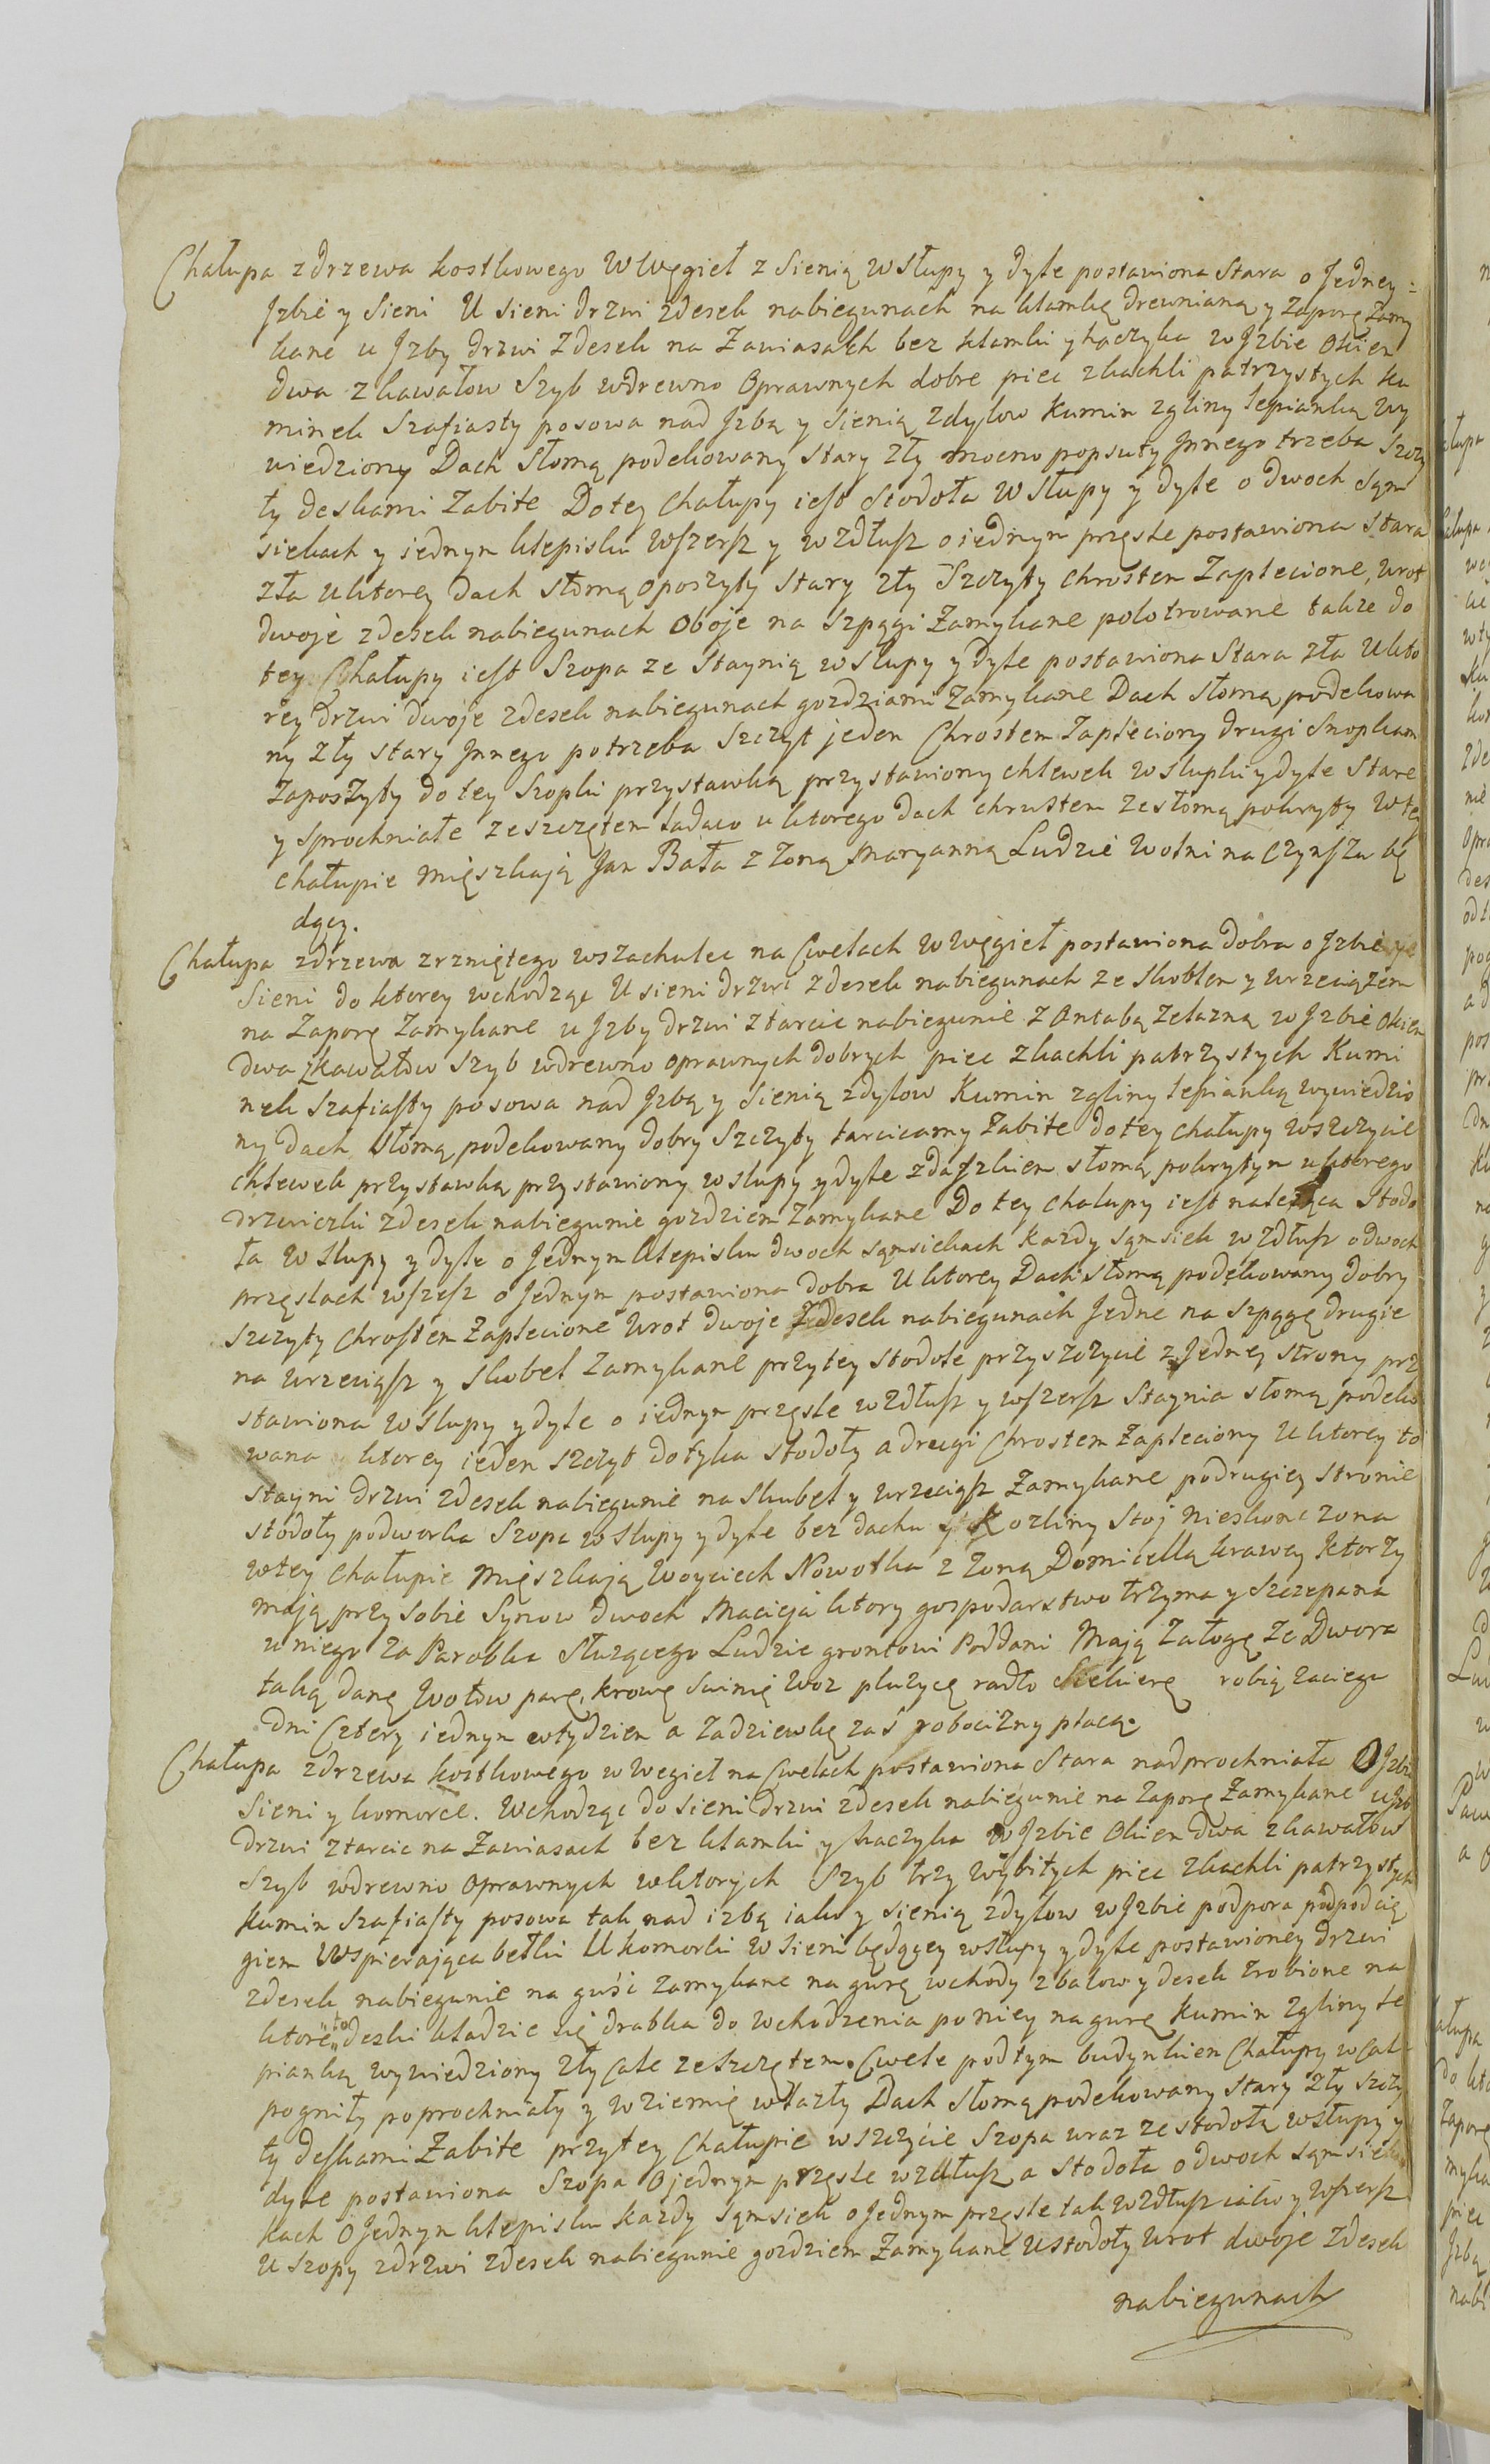 Chałupa z drzewa kostkowego w Węgieł z Sienią w Słupy y dyle postawiona Stara o Jedney
Jzbie y Sieni U sieni drzwi zdesek nabiegunach na klamkę drewnianą y Zaporę Zamy
kane u Jzby drzwi Zdesek na Zawiasakh bez klamki y haczyka w Jzbie Okien
dwa z kawałow Szyb wdrewno Oprawnych dobre piec zkachli patrzystych ku
minek Szafiasty posowa nad Jzbą y Sienią Zdylow Kumin zgliny lepianką wy
wiedziony Dach Słomą podekowany Stary zły mocno popsuty Jnnego trzeba Szczy
ty deskami Zabite Dotey Chałupy iest Stodoła w Słupy y dyle o dwoch sąm
siekach y iednym klepisku wszersz y wzdłusz oiednym pręsle postawiona Stara
zła uktorey Dach Słomą oposzyty Stary zły Szczyty chrostem Zaplecione, wrot
dwoje zdesek nabiegunach Oboje na szpągi Zamykane polotrowane także do
tey Chałupy iest Szopa ze Staynią w słupy y dyle postawiona Stara zła Ukto
rey drzwi dwoje zdesek nabiegunach gozdziami Zamykane Dach Słomą podekowa
ny zły stary Jnnego potrzeba Szczyt jeden Chrostem Zapleciony drugi Snopkam
Zaposzyty do tey Szopki przystawką przystawiony chlewek w słupki y dyle Stare
y sprochniałe ze szczętem ladaco uktorego dach chrustem ze słomą pokryty w tey
chałupie mięszkają Jan Bała z Zoną Maryanną Ludzie Wolni na Czynszu bę
dący.
Chałupa zdrzewa zrzniętego wszachulec na Cwelach w węgieł postawiona dobra o Jzbie y
Sieni do ktorey wchodząc U sieni drzwi zdesek nabiegunach ze skoblem y wrzeciążem
na Zaporę Zamykane u Jzby drzwi ztarcic nabiegunie z Antabą Zelazną w Jzbie Okien
dwa zkawałow szyb wdrewno oprawnych dobrych piec zkachli patrzystych Kumi
nek szafiasty posowa nad Jzbą y Sienią zdylow Kumin zgliny lepianką wywiedzio
ny dach Słomą podekowany dobry Szczyty tarcicamy Zabite dotey chałupy wszczycie
chlewek przystawką przystawiony w słupy y dyle z daszkiem słomą pokrytym uktorego
drzwiczki zdesek nabiegunie gozdziem Zamykane Do tey chałupy iest należąca Stodo
ła w Słupy y dyle o Jednym klepisku dwoch sąmsiekach Każdy sąmsiek wzdłusz odwoch
pręslach wszesz o Jednym postawiona dobra Uktorey Dach słomą podekowany dobry
szczyty chrostem Zaplecione wrot dwoje zdesek nabiegunach Jedne na szpągę drugie
na wrzeciąsz y skobel Zamykane przytey stodole przyszczycie z Jedney strony prz
stawiona w słupy y dyle o iednym pręsle wzdłusz y wszersz Staynia słomą podeko
wana ktorey ieden szczyt dotyka stodoły a drugi Chrostem Zapleciony U ktorey to
stayni drzwi zdesek nabiegunie na skubel y wrzeciąsz Zamykane podrugiey stronie
stodoły podworka Szopa w Słupy y dyle bez dachu y Kozliny stoj nieskonczona
wtey Chałupie mięszkają Woyciech Nowotka z Zoną Domicellą krawcy Ktorzy
mają przy sobie Synow dwoch Macieja ktory gospodarstwo trzyma y Szczepana
u niego za Parobka Służącego Ludzie grontowi Poddani Mają Załogę ze Dwora
taką daną Wołow parę, krowę Swinię Woz płużycę radło Siekierę robią zaciegu
dni Cztery iednym wtydzien a zadziewkę zaś robocizny płacą.
Chałupa zdrzewa kostkowego w węgieł na Cwelach postawiona Stara nadprochniała O Jzbie
Sieni y komorce. Wchodząc do sieni drzwi zdesek nabiegunie na Zaporę Zamykane u Jzb
drzwi ztarcic na Zawiasach bez klamki y haczyka w Jzbie Okien dwa zkawałow
szyb wdrewno Oprawnych wktorych Szyb trzy wybitych piec zkachli patrzystych
Kumin szafiasty posowa tak nad izbą iako y sienią zdylow w Jzbie podpora podpodcią
giem Wspierająca belki U komorki w sieni będącey wsłupy y dyle postawioney drzwi
zdesek nabiegunie na guśi zamykane na gurę wchody zbalow y desek zrobione na
ktore to deski kładzie się drabka do wchodzenia poniey nagurę Kumin zgliny le
pianką wywiedziony zły Cale zeszczętem. Cwele podtym budynkiem Chałupy wcale
pogniły poprochniały y wziemię wlazły Dach słomą podekowany stary zły szczy
ty deskami Zabite przytey Chałupie wszczycie Szopa wraz ze stodołą wsłupy y
dyle postawiona Szopa o jednym pręsle wzdłusz a Stodoła odwoch sąmsie
kach o Jednym klepisku każdy sąmsiek o Jednym pręsle tak wzdłusz iako y wszersz
U szopy zdrzwi zdesek nabiegunie gozdziem Zamykane ustodoły wrot dwoje Zdesek
nabiegunach